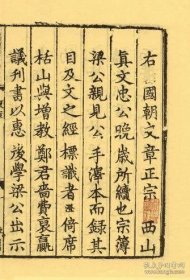 右國朝文章正宗西山
眞文忠公晚歲所續也宗簿
梁公親見公手澤本而錄其
目及文之經標識者倚席
枯山與增教鄭君嗇費裒贏
議刊書以惠後學梁公出示